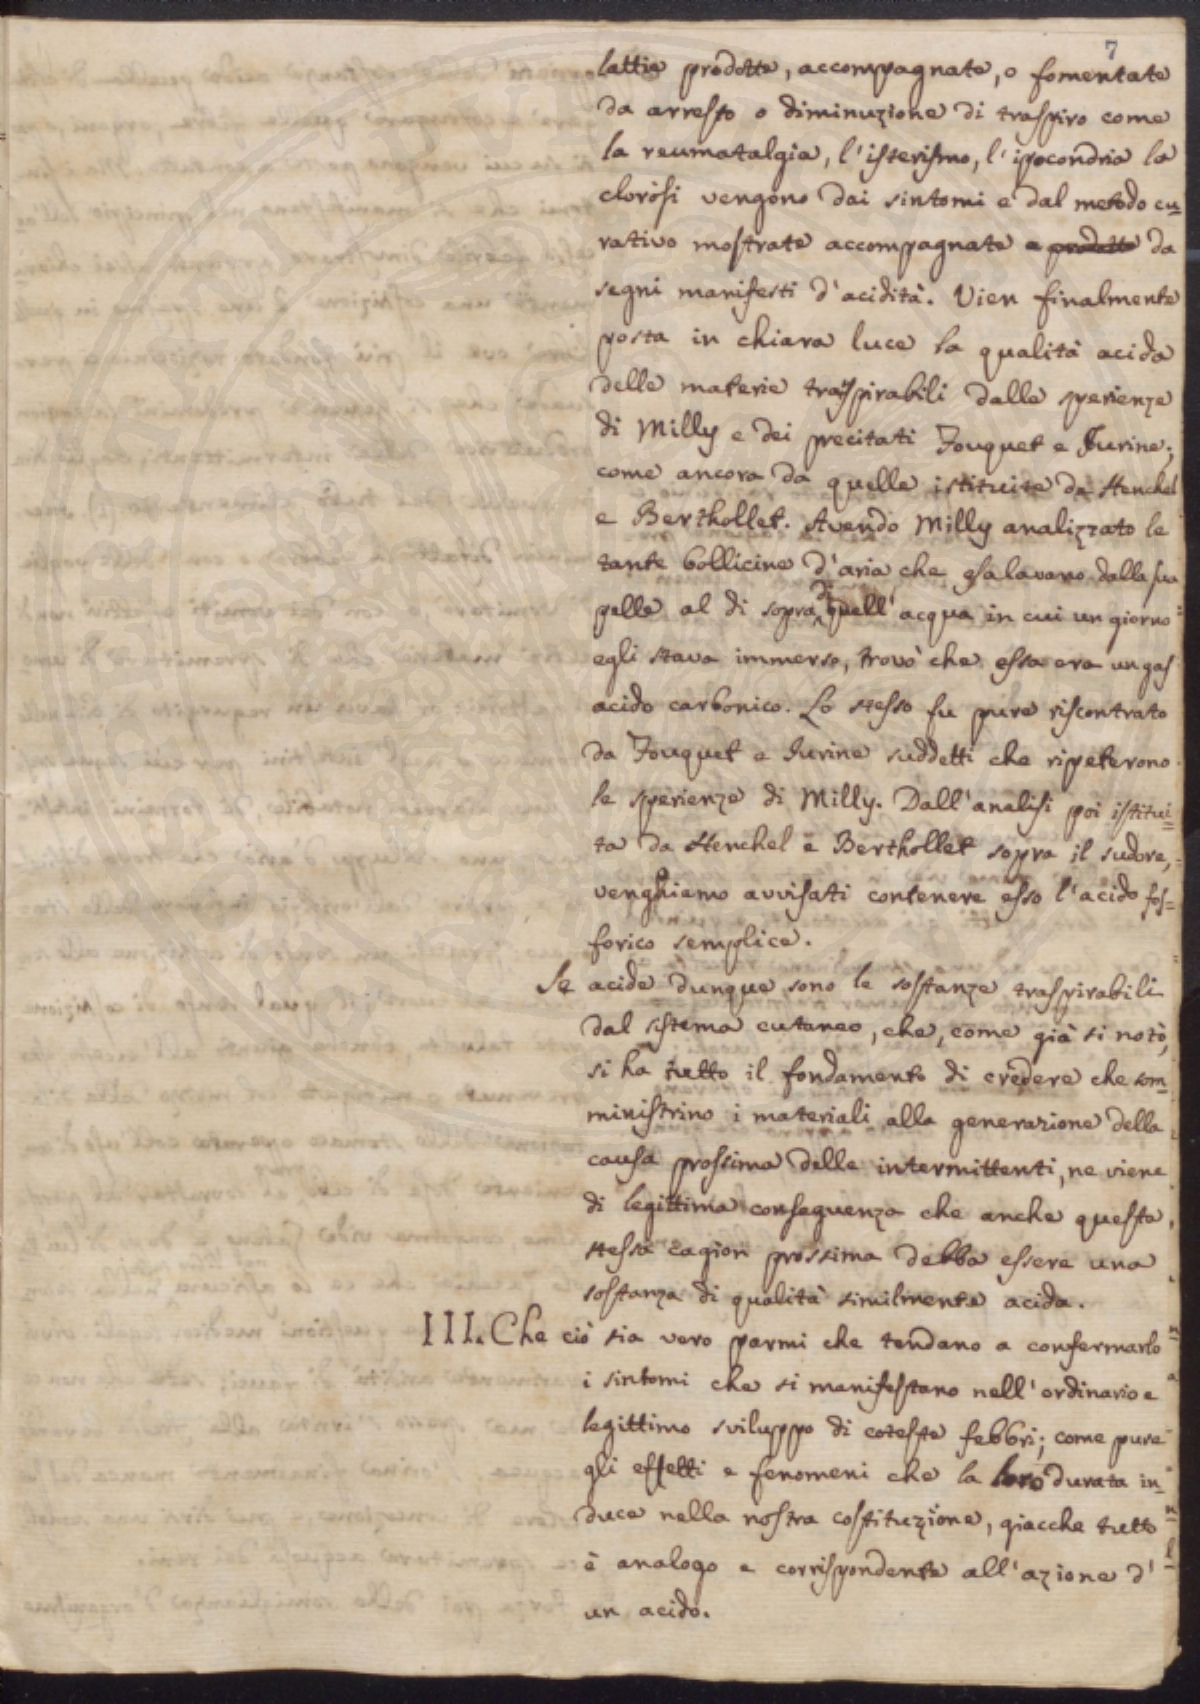 7
lattie prodotte, accompagnate, o fomentate
da arresto o diminuzione di traspiro come
la reumatalgia, l'isterismo, l'ipocondria la
clorosi vengono dai sintomi e dal metodo cu-
rativo mostrate accompagnate e prodotte da
segni manifesti d'acidità. Vien finalmente
posta in chiara luce la qualità acida
delle materie traspirabili dalle sperienze
di Milly e dei precitati Fouquet e Jurine;
come ancora da quelle istituite da Henchel
e Berthollet. Avendo Milly analizzato le
tante bollicine d'aria che esalavano dalla sua
pelle al di sopra di quell'acqua in cui un giorno
egli stava immerso, trovò che essa era un gas
acido carbonico. Lo stesso fu pure riscontrato
da Fouquet e Jurine suddetti che ripeterono
le sperienze di Milly. Dall'analisi poi istitui=
ta da Henchel e Berthollet sopra il sudore,
venghiamo avvisati contenere esso l'acido fos=
forico semplice.
Se acide dunque sono le sostanze traspirabili
dal sistema cutaneo, che, come già si notò,
si ha tutto il fondamento di credere che som=
ministrino i materiali alla generazione della
causa prossima delle intermittenti, ne viene
di legittima conseguenza che anche questa
stessa cagion prossima debba essere una
sostanza di qualità similmente acida.
III. Che ciò sia vero parmi che tendano a confermarlo
i sintomi che si manifestano nell'ordinario e
legittimo sviluppo di coteste febbri; come pure
gli effetti e fenomeni che la loro durata in=
duce nella nostra costituzione, giacche tutto
è analogo e corrispondente all'azione d'
un acido.